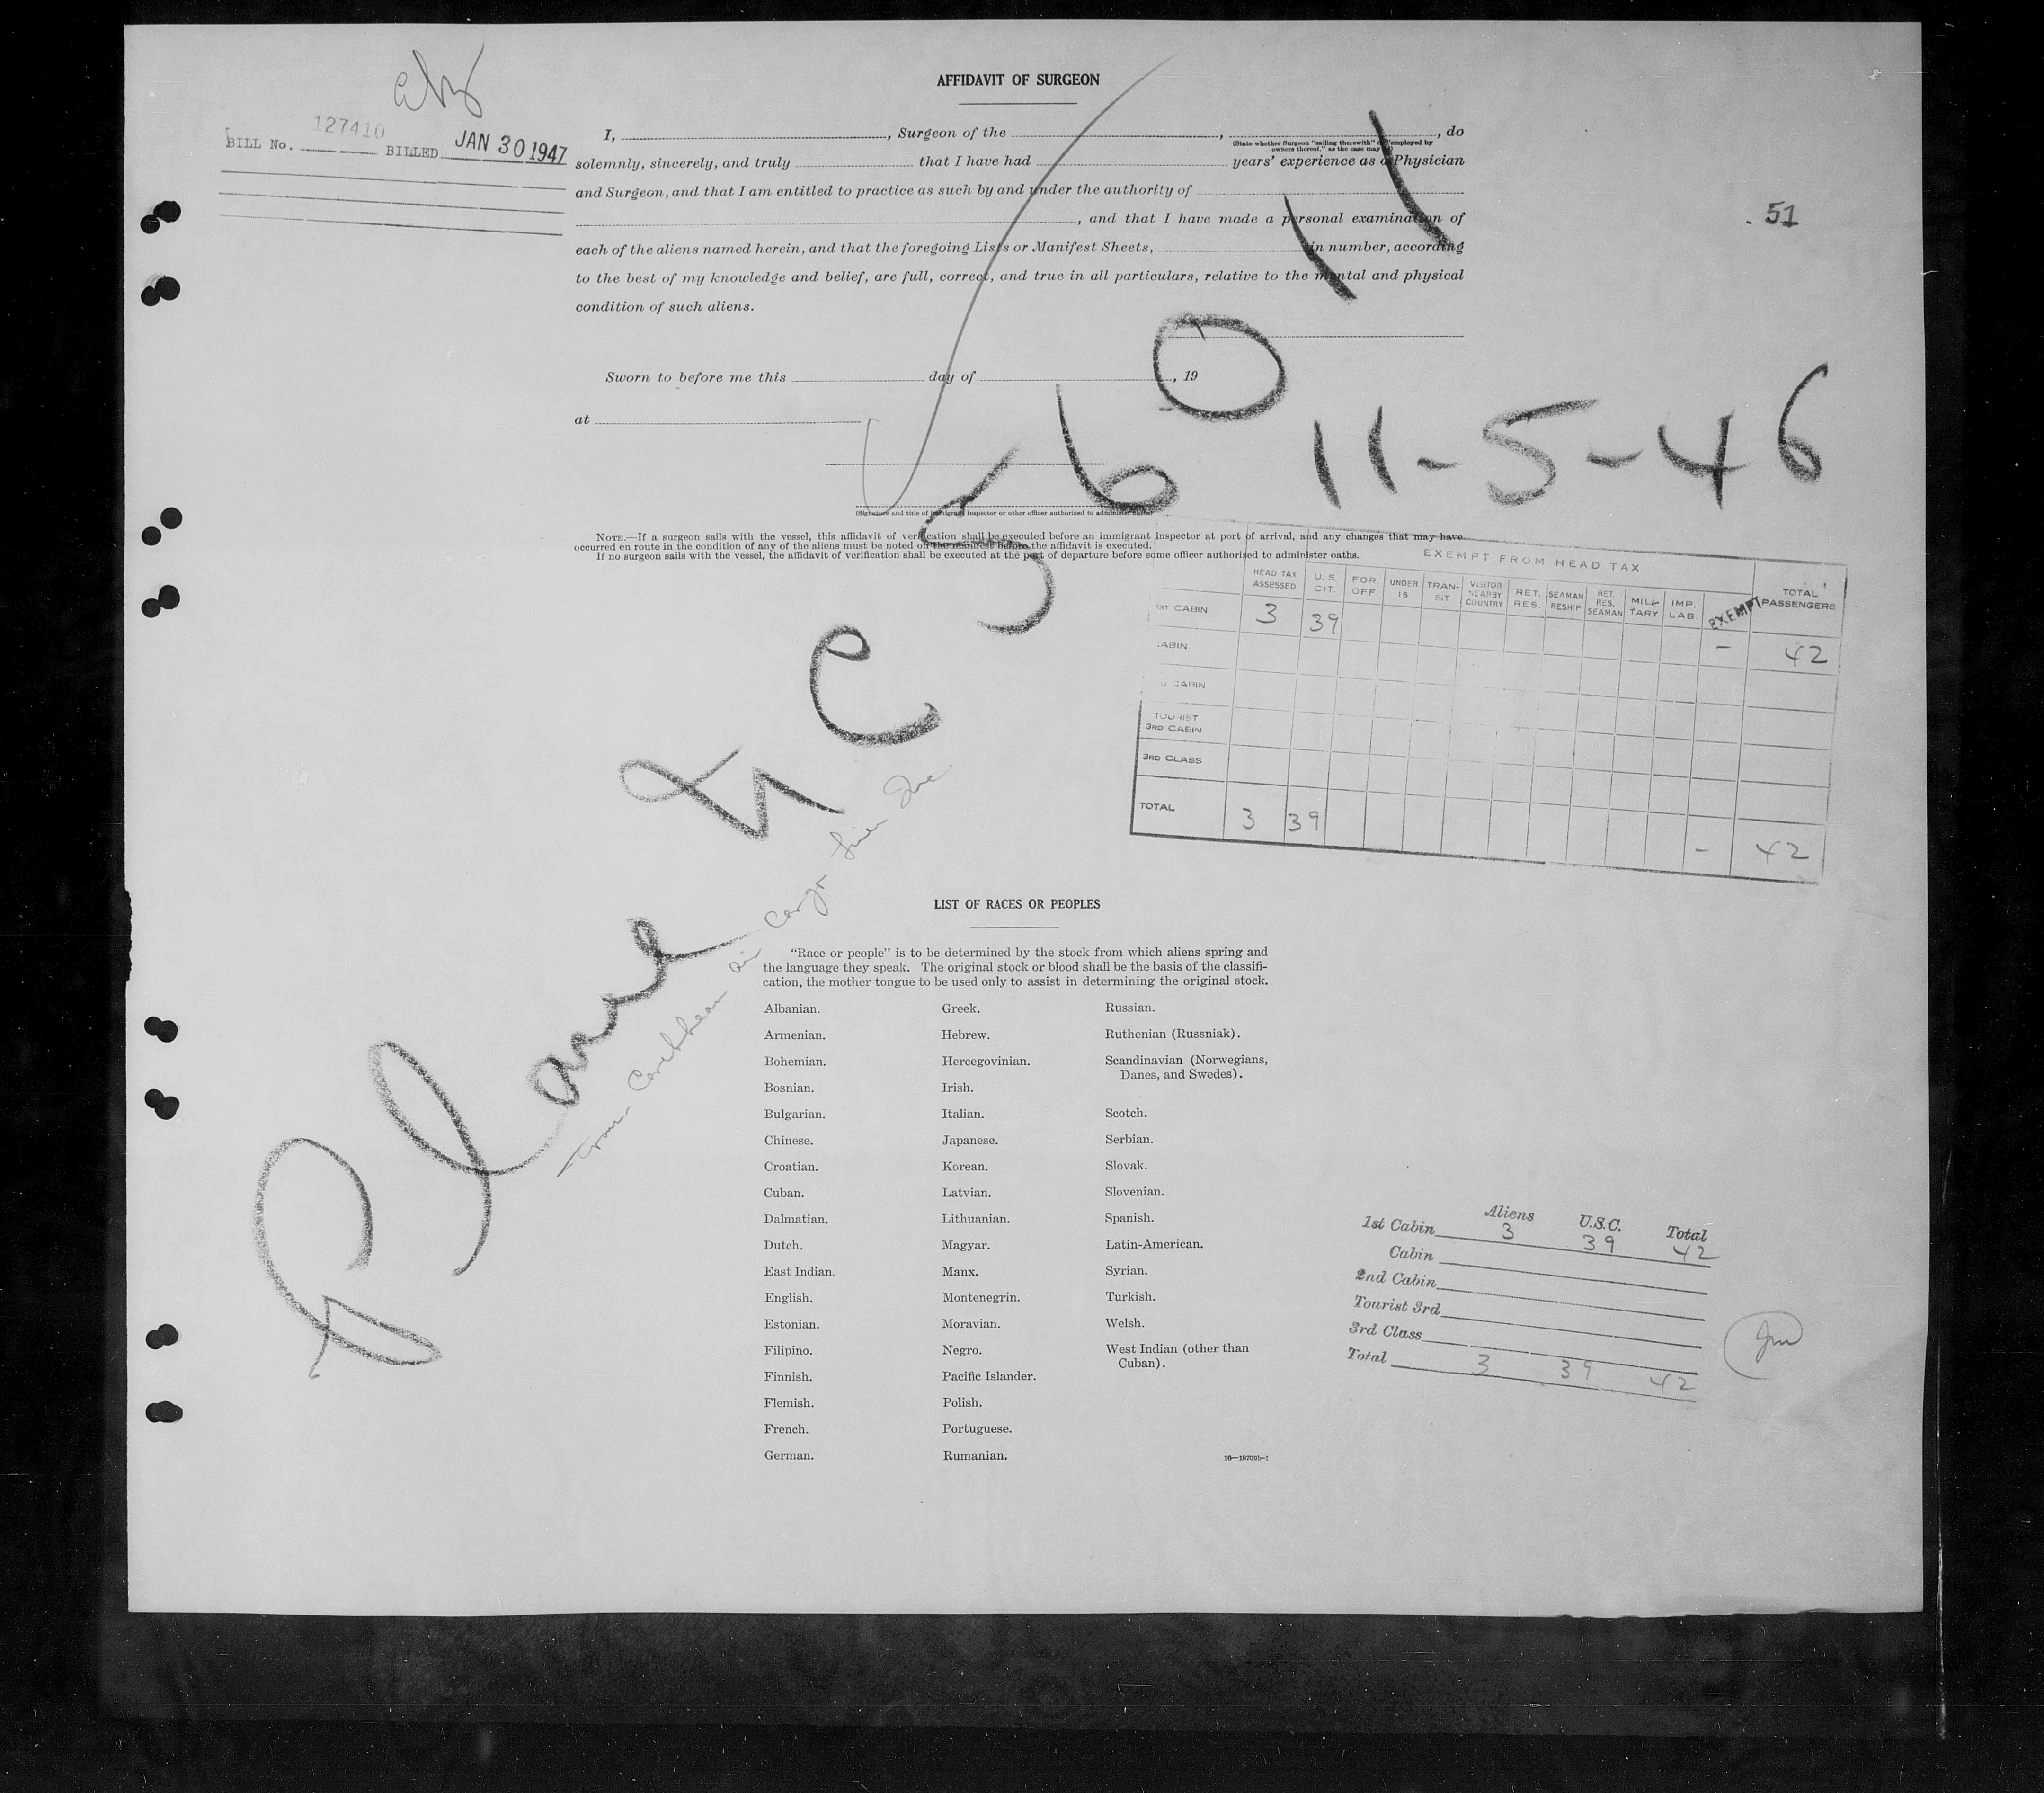 AFFIDAVIT OF SURGEON
BILL No. 127410 BILLED JAN 30 1947
I, , Surgeon of the , , do
(State whether Surgeon "sailing therewith" or "employed by
owners thereof," as the case may be)
solemnly, sincerely, and truly that I have had years' experience as a Physician
and Surgeon, and that I am entitled to practice as such by and under the authority of
, and that I have made a personal examination of
each of the aliens named herein, and that the foregoing Lists or Manifest Sheets, in number, according
to the best of my knowledge and belief, are full, correct, and true in all particulars, relative to the mental and physical
condition of such aliens.
51
Sworn to before me this day of , 19
at
11-5-46
(Signature and title of immigrant inspector or other officer authorized to administer oaths)
NOTE.—If a surgeon sails with the vessel, this affidavit of verification shall be executed before an immigrant inspector at port of arrival, and any changes that may have
occurred en route in the condition of any of the aliens must be noted on the manifest before the affidavit is executed.
If no surgeon sails with the vessel, the affidavit of verification shall be executed at the port of departure before some officer authorized to administer oaths.
EXEMPT FROM HEAD TAX
HEAD TAX ASSESSED U. S. CIT. FOR. OFF. UNDER 16 TRAN-SIT VISITOR NEARBY COUNTRY RET. RES. SEAMAN RESHIP RET. RES. SEAMAN MILI-TARY IMP. LAB EXEMPT TOTAL PASSENGERS
1ST CABIN 3 39 - 42
CABIN
CABIN
TOURIST 3RD CABIN
3RD CLASS
TOTAL 3 39 - 42
Plane
Caribbean air Cargo
LIST OF RACES OR PEOPLES
"Race or people" is to be determined by the stock from which aliens spring and
the language they speak. The original stock or blood shall be the basis of the classifi-
cation, the mother tongue to be used only to assist in determining the original stock.
Albanian.
Armenian.
Bohemian.
Bosnian.
Bulgarian.
Chinese.
Croatian.
Cuban.
Dalmatian.
Dutch.
East Indian.
English.
Estonian.
Filipino.
Finnish.
Flemish.
French.
German.
Greek.
Hebrew.
Hercegovinian.
Irish.
Italian.
Japanese.
Korean.
Latvian.
Lithuanian.
Magyar.
Manx.
Montenegrin.
Moravian.
Negro.
Pacific Islander.
Polish.
Portuguese.
Rumanian.
Russian.
Ruthenian (Russniak).
Scandinavian (Norwegians,
Danes, and Swedes).
Scotch.
Serbian.
Slovak.
Slovenian.
Spanish.
Latin-American.
Syrian.
Turkish.
Welsh.
West Indian (other than
Cuban).
16—18709b-1
Aliens U.S.C. Total
1st Cabin 3 39 42
Cabin
2nd Cabin
Tourist 3rd
3rd Class
Total 3 39 42